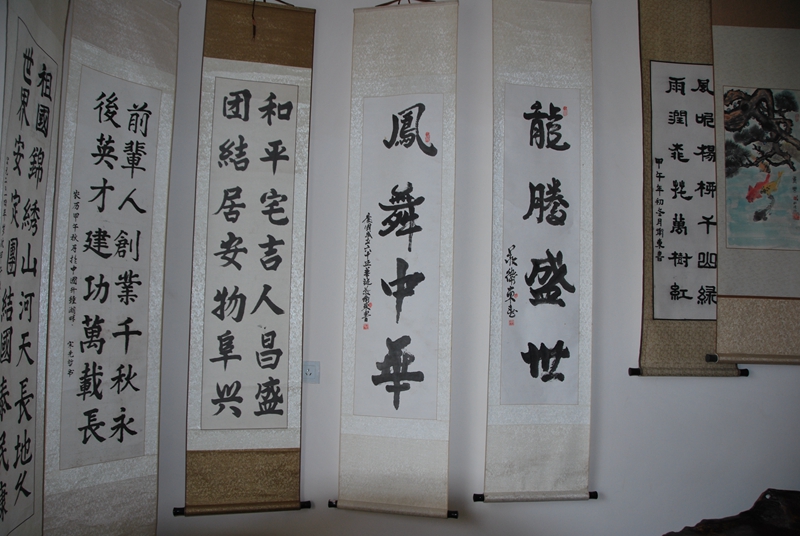 風暖楊柳千山緑
雨潤桃花萬樹紅
龍騰盛世
鳳舞中華
和平宅吉人昌盛
团結居安物阜兴
前輩人創業千秋永
後英才建功萬載長
祖國錦綉山河天長地久
世界安定團結國泰民康